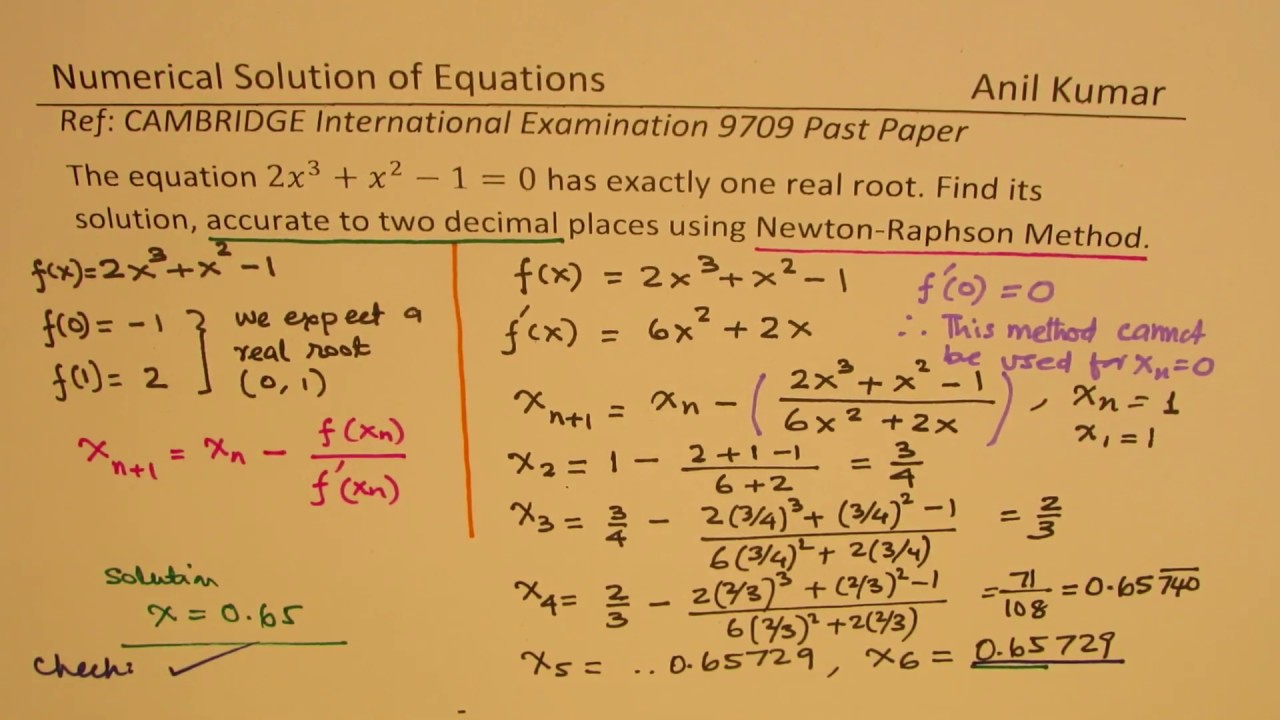 Numerical Solution of Equations Anil Kumar
Ref: CAMBRIDGE International Examination 9709 Past Paper
The equation 2x³ + x² − 1 = 0 has exactly one real root. Find its
solution, accurate to two decimal places using Newton-Raphson Method.
f(x)=2x³+x²-1
f(0)= -1
f(1)= 2
we expect a
real root
(0,1)
xₙ₊₁ = xₙ - f(xₙ)/f'(xₙ)
solution
x = 0.65
Check: ✓
f(x) = 2x³+x²-1
f'(x) = 6x²+2x
f'(0) = 0
∴ This method cannot
be used for xₙ=0
xₙ₊₁ = xₙ - (2x³+x²-1/6x²+2x), xₙ = 1
x₁ = 1
x₂ = 1 - 2+1-1/6+2 = 3/4
x₃ = 3/4 - 2(3/4)³+(3/4)²-1/6(3/4)²+2(3/4) = 2/3
x₄= 2/3 - 2(2/3)³+(2/3)²-1/6(2/3)²+2(2/3) = 71/108 = 0.657̅4̅0̅
x₅ = ..0.65729, x₆ = 0.65729